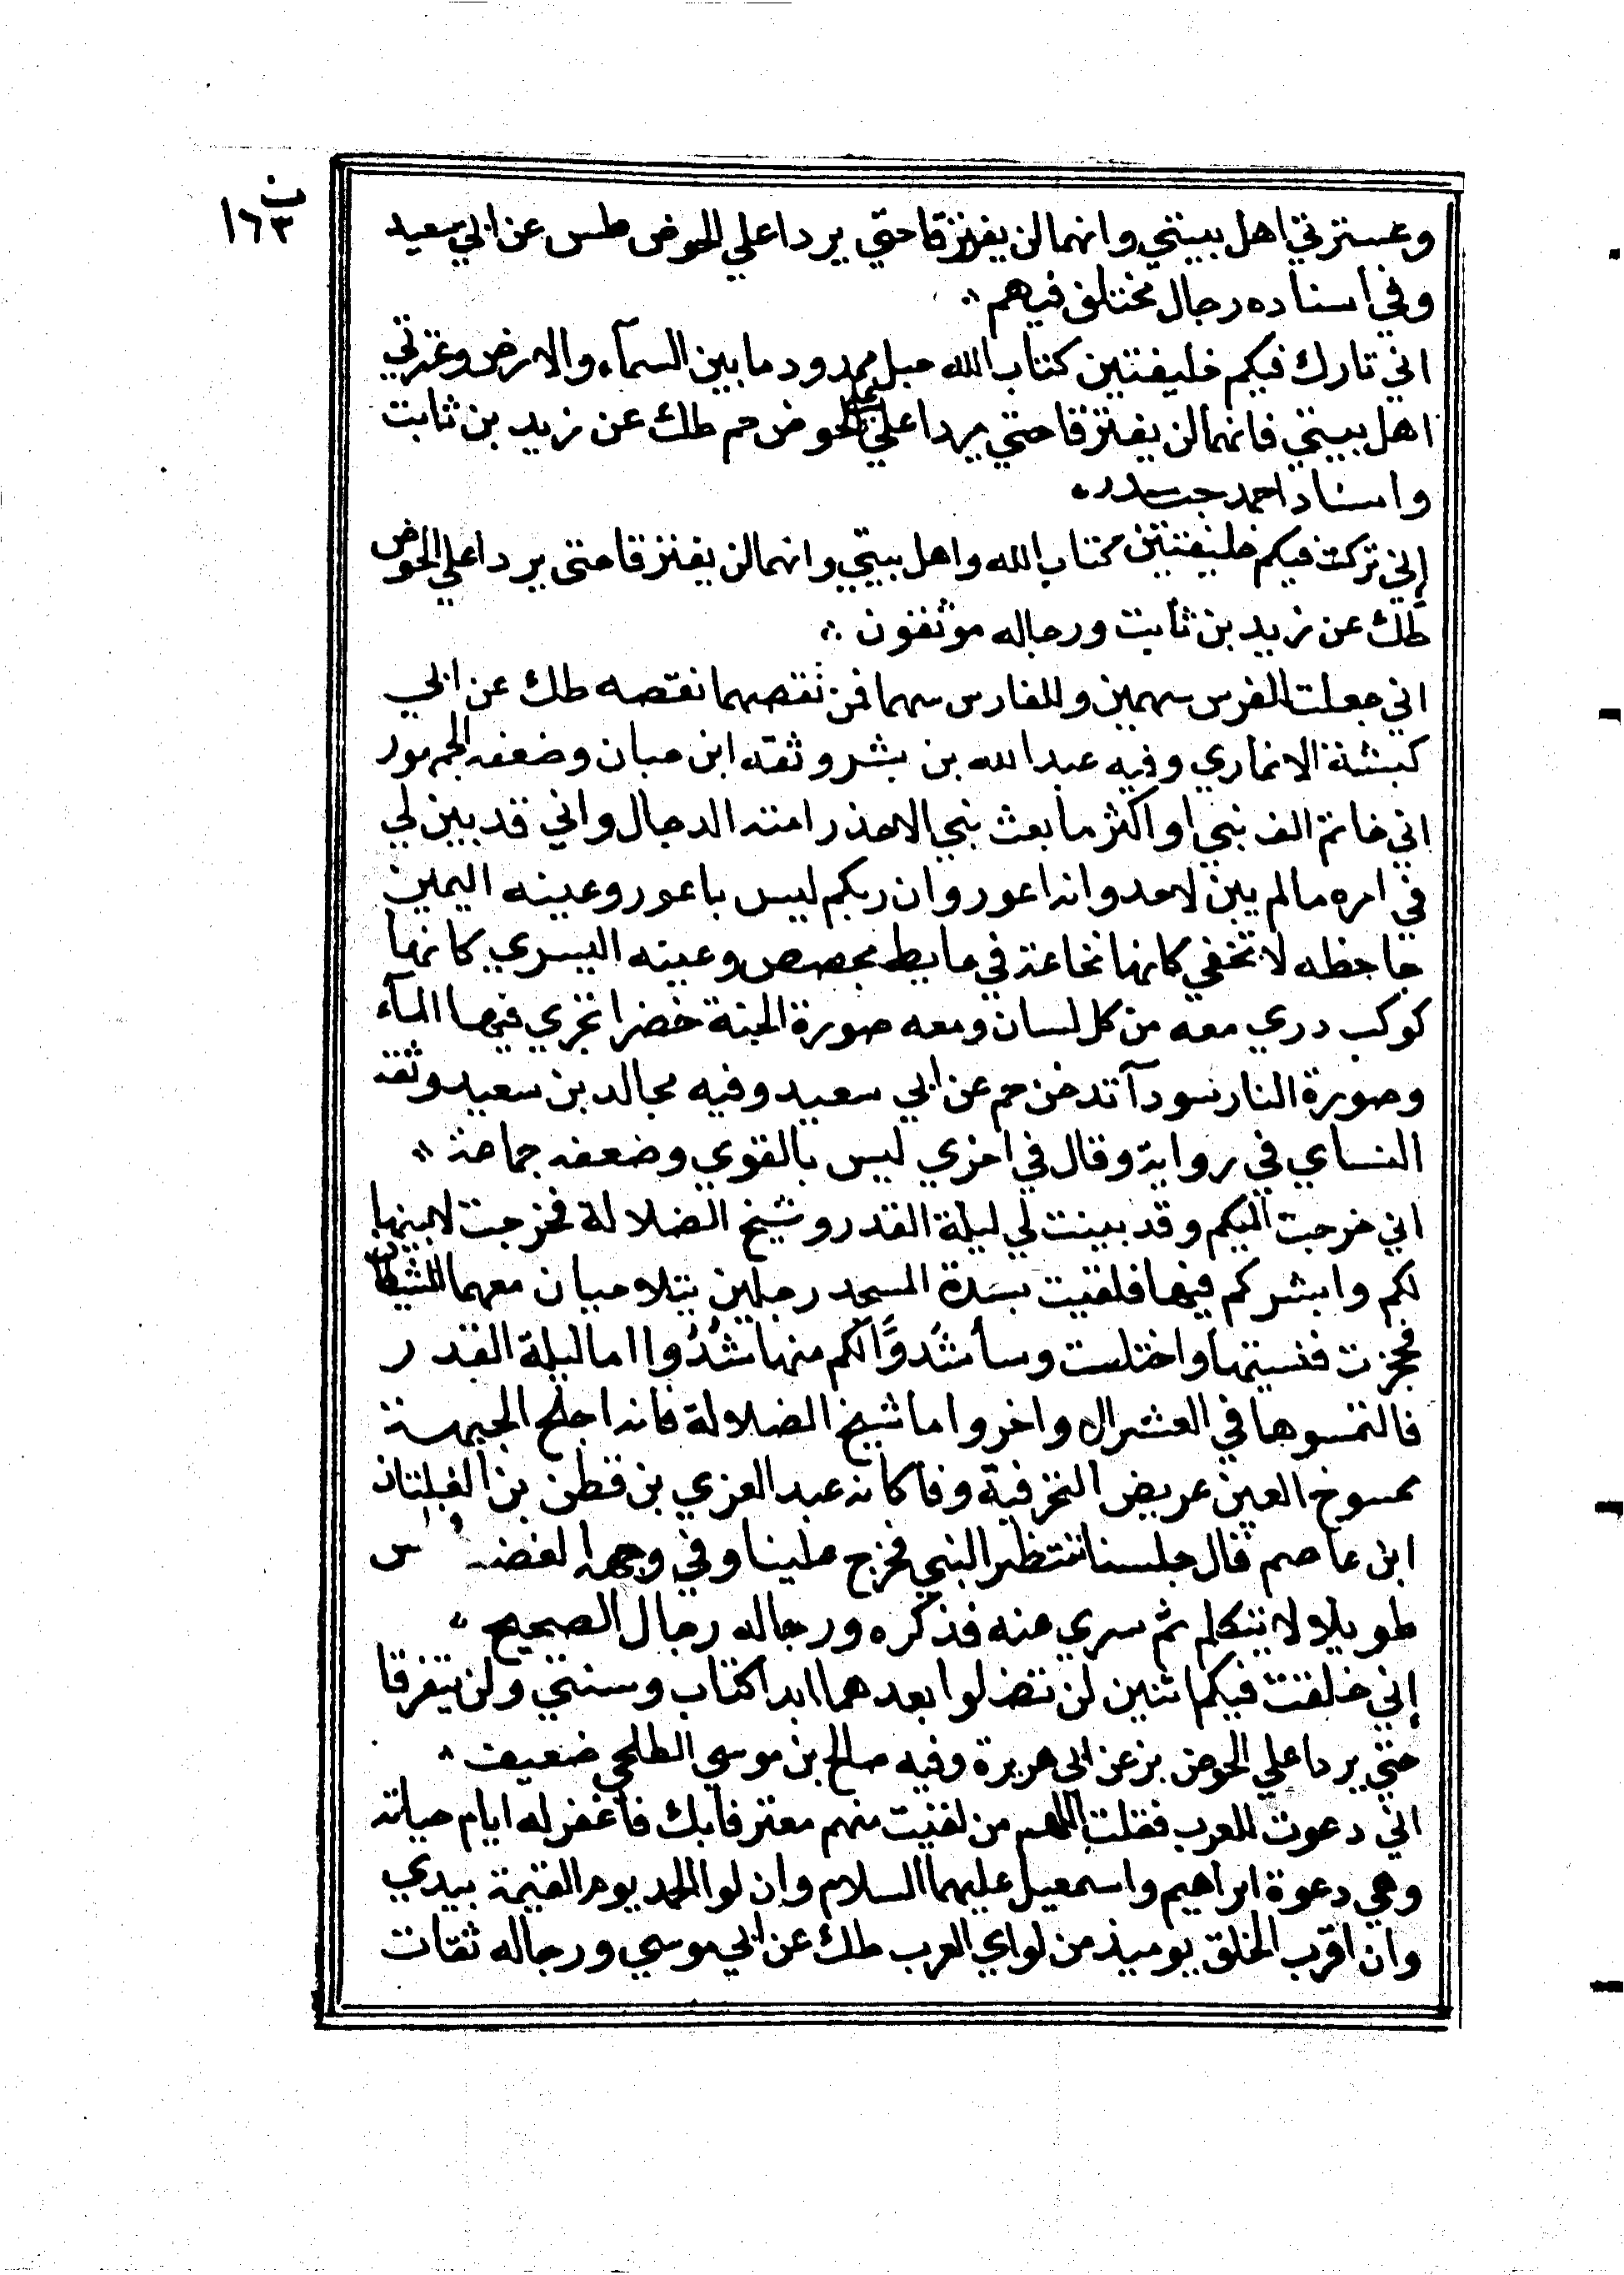 ن ١٦٣
وعسترتي اهل بيتي وانهما لن يفترقا حتي يردا علي الحوض طس عن ابي سعيد
وفي اسناده رجال مختلف فيهم
اني تارك فيكم خليفتين كتاب الله حبل ممدود ما بين السمآء والارض وعترتي
اهل بيتي فانهما لن يفترقا حتي يردا علي الحوض حم طك عن زيد بن ثابت
واسناد احمد جيد
إني تركت فيكم خليفتين كتاب الله واهل بيتي وانهما لن يفترقا حتى يردا علي الحوض
طك عن زيد بن ثابت ورجاله موثقون
اني جعلت للفرس سهمين وللفارس سهما فمن نقصهما نقصه طك عن ابي
كبشة الانماري وفيه عبد الله بن بشر وثقه ابن حبان وضعفه الجمهور
اني خاتم الف نبي او اكثر ما بعث نبي الا حذر امته الدجال واني قد بين لي
في امره ما لم يبين لاحد وانه اعور وان ربكم ليس باعور وعينه اليمين
جاحظه لا تخفي كانها نخاعة في حايط مجصص وعينه اليسري كانها
كوكب دري معه من كل لسان ومعه صورة الجنة خضرا تجري فيها المآء
وصورة النار سودآ تدخن حم عن ابي سعيد وفيه مجالد بن سعيد وثقه
النساي في رواية وقال في اخري ليس بالقوي وضعفه جماعة
اني خرجت اليكم وقد بينت لي ليلة القدر وشيخ الضلالة فخرجت لابينها
لكم وابشركم فيها فلقيت بسدة المسجد رجلين يتلاحيان معهما الشيطان
فحجزت فنسيتها واختلست وسأشدوا لكم منها شدوا اما ليلة القدر
فالتمسوها في العشر الاواخر واما شيخ الضلالة فانه اجلح الجبهة
ممسوخ العين عريض النخر فيه دفا كانه عبد العزي بن قطن بز الفلتان
ابن عاصم قال جلسنا ننتظر النبي فخرج علينا وفي وجهه الغضب
طويلا لا يتكلم ثم سري عنه فذكره ورجاله رجال الصحيح
إني خلفت فيكم اثنين لن تضلوا بعدهما ابدا كتاب وسنتي ولن يتفرقا
حتي يردا علي الحوض بز عن ابى هريرة وفيه صالح بن موسي الطلحي ضعيف
اني دعوت للعرب فقلت اللهم من لقيت منهم معترفا بك فاغفر له ايام حياته
وهي دعوة ابراهيم واسمعيل عليهما السلام وان لوا الحمد يوم القيمة بيدي
وان اقرب الخلق يوميذ من لواي العرب طك عن ابي موسي ورجاله ثقات